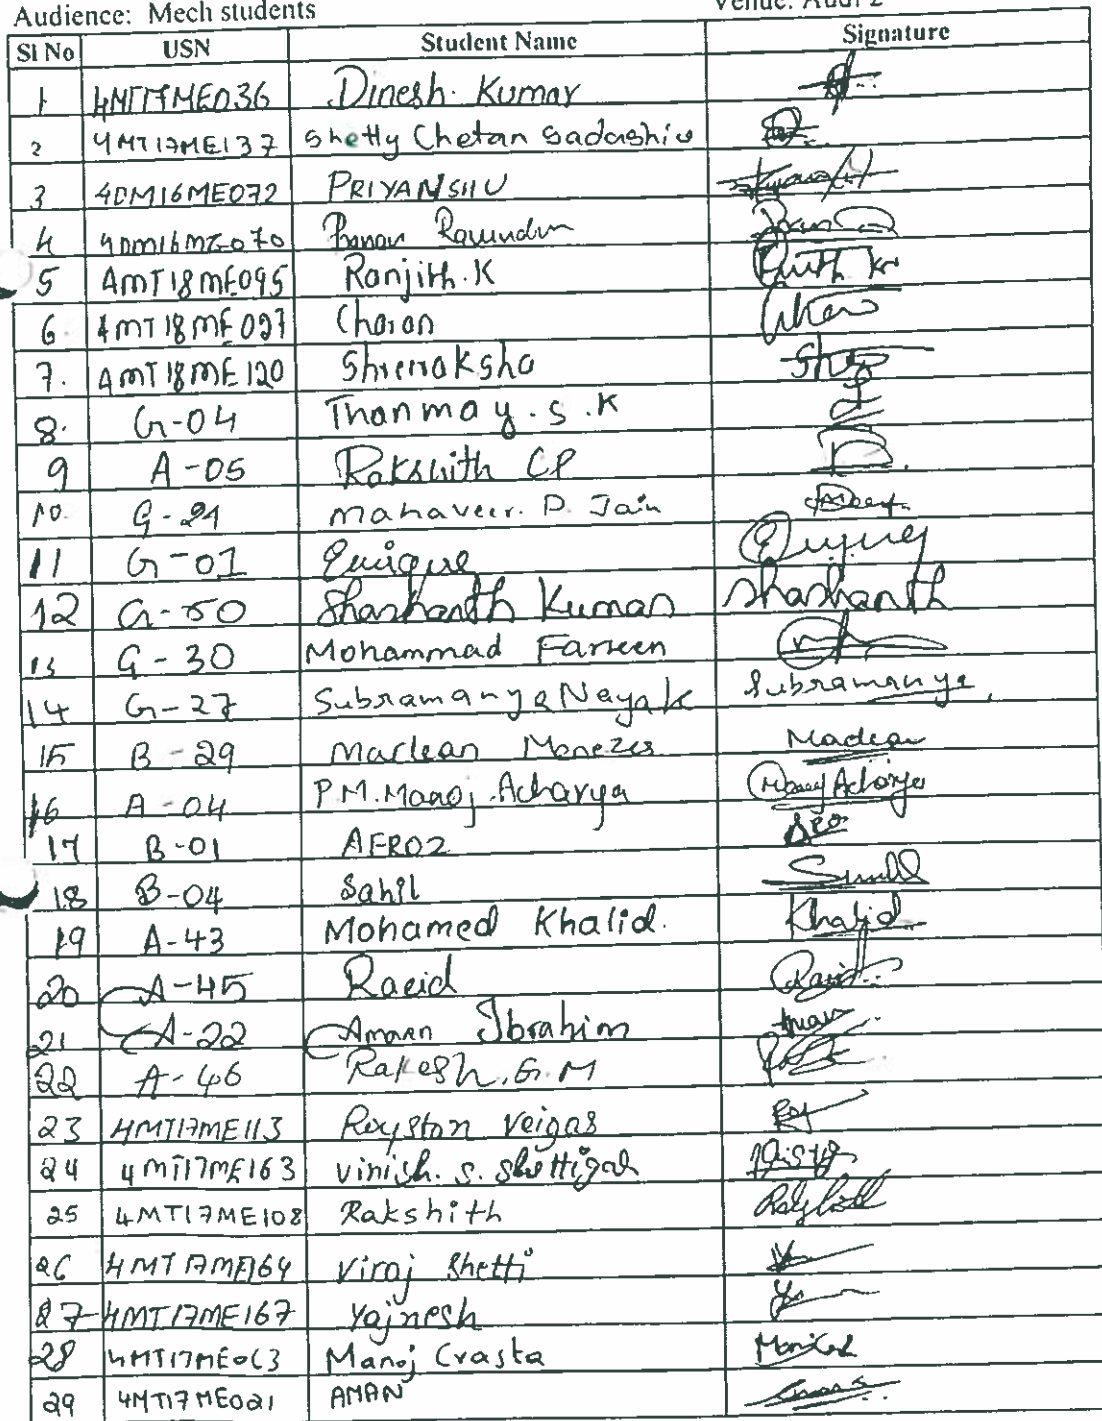 Audience: Mech students Venue: Audi 2
Sl No USN Student Name Signature
1 4MT17ME036 Dinesh. Kumar
2 4MT17ME137 Shetty Chetan Sadashiv
3 4DM16ME072 PRIYANSHU
4 4DM16ME070 Ravindran
5 4MT18ME095 Ranjith.K
6 4MT18ME027 Charan
7. 4MT18ME120 Shreeraksha
8. G-04 Thanmay.S.K
9 A-05 Rakshith CP
10. G-21 Mahaveer. P. Jain
11 G-01 Enrique
12 G-50 Shashanth Kumar Shashanth
13 G-30 Mohammad Farseen
14 G-27 Subramanya Nayak Subramanya
15 B-29 Maclean Menezes Maclean
16 A-04 P.M.Manoj.Acharya Manoj Acharya
17 B-01 AFROZ
18 B-04 Sahil
19 A-43 Mohamed Khalid. Khalid
20 A-45 Raeid
21 A-22 Amaan Ibrahim
22 A-46 Rakesh.G.M
23 4MT17ME113 Royston Veigas
24 4MT17ME163 Vinish. S. Shettigar
25 4MT17ME108 Rakshith
26 4MT17ME164 Viraj Shetti
27 4MT17ME167 Yajnesh
28 4MT17ME063 Manoj Crasta
29 4MT17ME021 AMAN